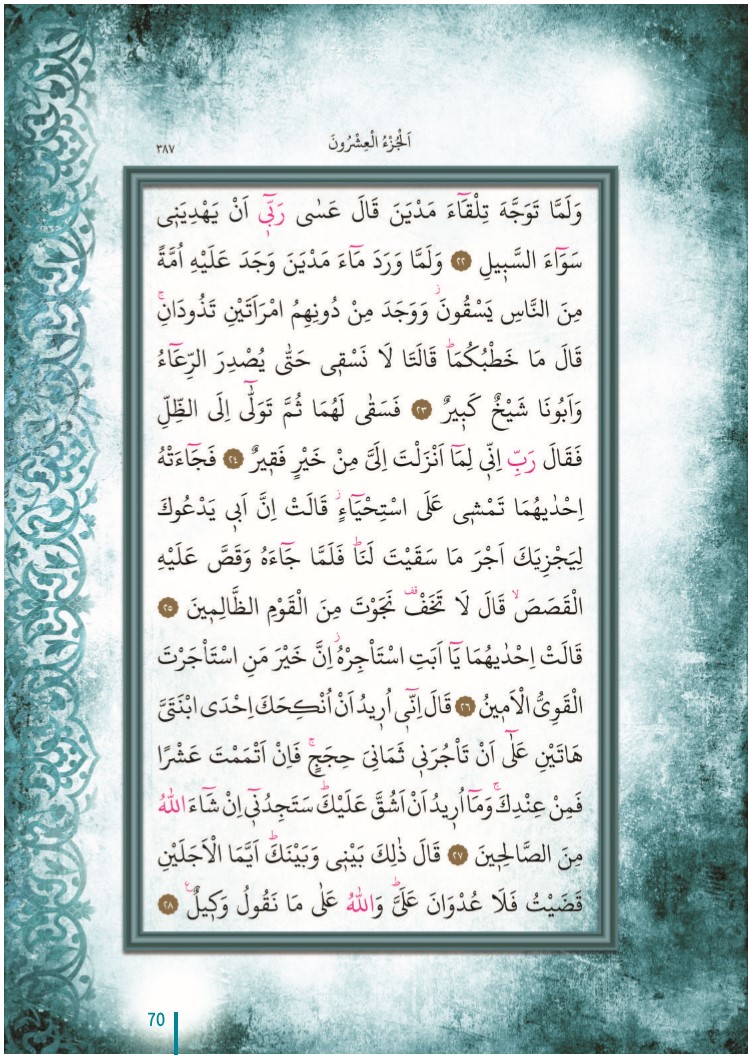 اَلْجُزْءُ الْعِشْرُونَ
٣٨٧
وَلَمَّا تَوَجَّهَ تِلْقَٓاءَ مَدْيَنَ قَالَ عَسٰى رَبّٖٓي اَنْ يَهْدِيَنٖي
سَوَٓاءَ السَّبٖيلِ ٢٢ وَلَمَّا وَرَدَ مَٓاءَ مَدْيَنَ وَجَدَ عَلَيْهِ اُمَّةً
مِنَ النَّاسِ يَسْقُونَؗ وَوَجَدَ مِنْ دُونِهِمُ امْرَاَتَيْنِ تَذُودَانِۚ
قَالَ مَا خَطْبُكُمَاؕ قَالَتَا لَا نَسْقٖي حَتّٰى يُصْدِرَ الرِّعَٓاءُ
وَاَبُونَا شَيْخٌ كَبٖيرٌ ٢٣ فَسَقٰى لَهُمَا ثُمَّ تَوَلّٰٓى اِلَى الظِّلِّ
فَقَالَ رَبِّ اِنّٖي لِمَٓا اَنْزَلْتَ اِلَيَّ مِنْ خَيْرٍ فَقٖيرٌ ٢٤ فَجَٓاءَتْهُ
اِحْدٰيهُمَا تَمْشٖي عَلَى اسْتِحْيَٓاءٍؗ قَالَتْ اِنَّ اَبٖي يَدْعُوكَ
لِيَجْزِيَكَ اَجْرَ مَا سَقَيْتَ لَنَاؕ فَلَمَّا جَٓاءَهُ وَقَصَّ عَلَيْهِ
الْقَصَصَۙ قَالَ لَا تَخَفْ۠ نَجَوْتَ مِنَ الْقَوْمِ الظَّالِمٖينَ ٢٥
قَالَتْ اِحْدٰيهُمَا يَٓا اَبَتِ اسْتَأْجِرْهُؗ اِنَّ خَيْرَ مَنِ اسْتَأْجَرْتَ
الْقَوِيُّ الْاَمٖينُ ٢٦ قَالَ اِنّٖٓي اُرٖيدُ اَنْ اُنْكِحَكَ اِحْدَى ابْنَتَيَّ
هَاتَيْنِ عَلٰٓى اَنْ تَأْجُرَنٖي ثَمَانِيَ حِجَجٍۚ فَاِنْ اَتْمَمْتَ عَشْرًا
فَمِنْ عِنْدِكَۚ وَمَٓا اُرٖيدُ اَنْ اَشُقَّ عَلَيْكَؕ سَتَجِدُنٖٓي اِنْ شَٓاءَ اللّٰهُ
مِنَ الصَّالِحٖينَ ٢٧ قَالَ ذٰلِكَ بَيْنٖي وَبَيْنَكَؕ اَيَّمَا الْاَجَلَيْنِ
قَضَيْتُ فَلَا عُدْوَانَ عَلَيَّؕ وَاللّٰهُ عَلٰى مَا نَقُولُ وَكٖيلٌࣖ ٢٨
70